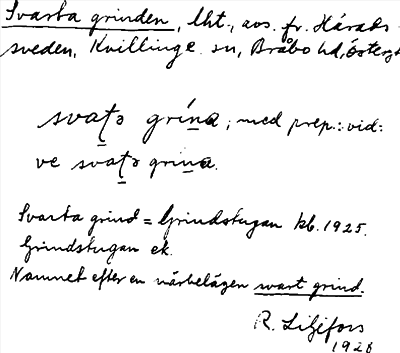 Svarta grinden, lht., avs. fr. Härads-
sveden, Kvillinge sn, Bråbo hd, Österg
svaṭə grína; med prep.: vid:
ve svaṭə grina.
Svarta grind = Grindstugan kb. 1925.
Grindstugan ek.
Namnet efter en närbelägen svart grind.
R. Liljefors
1928